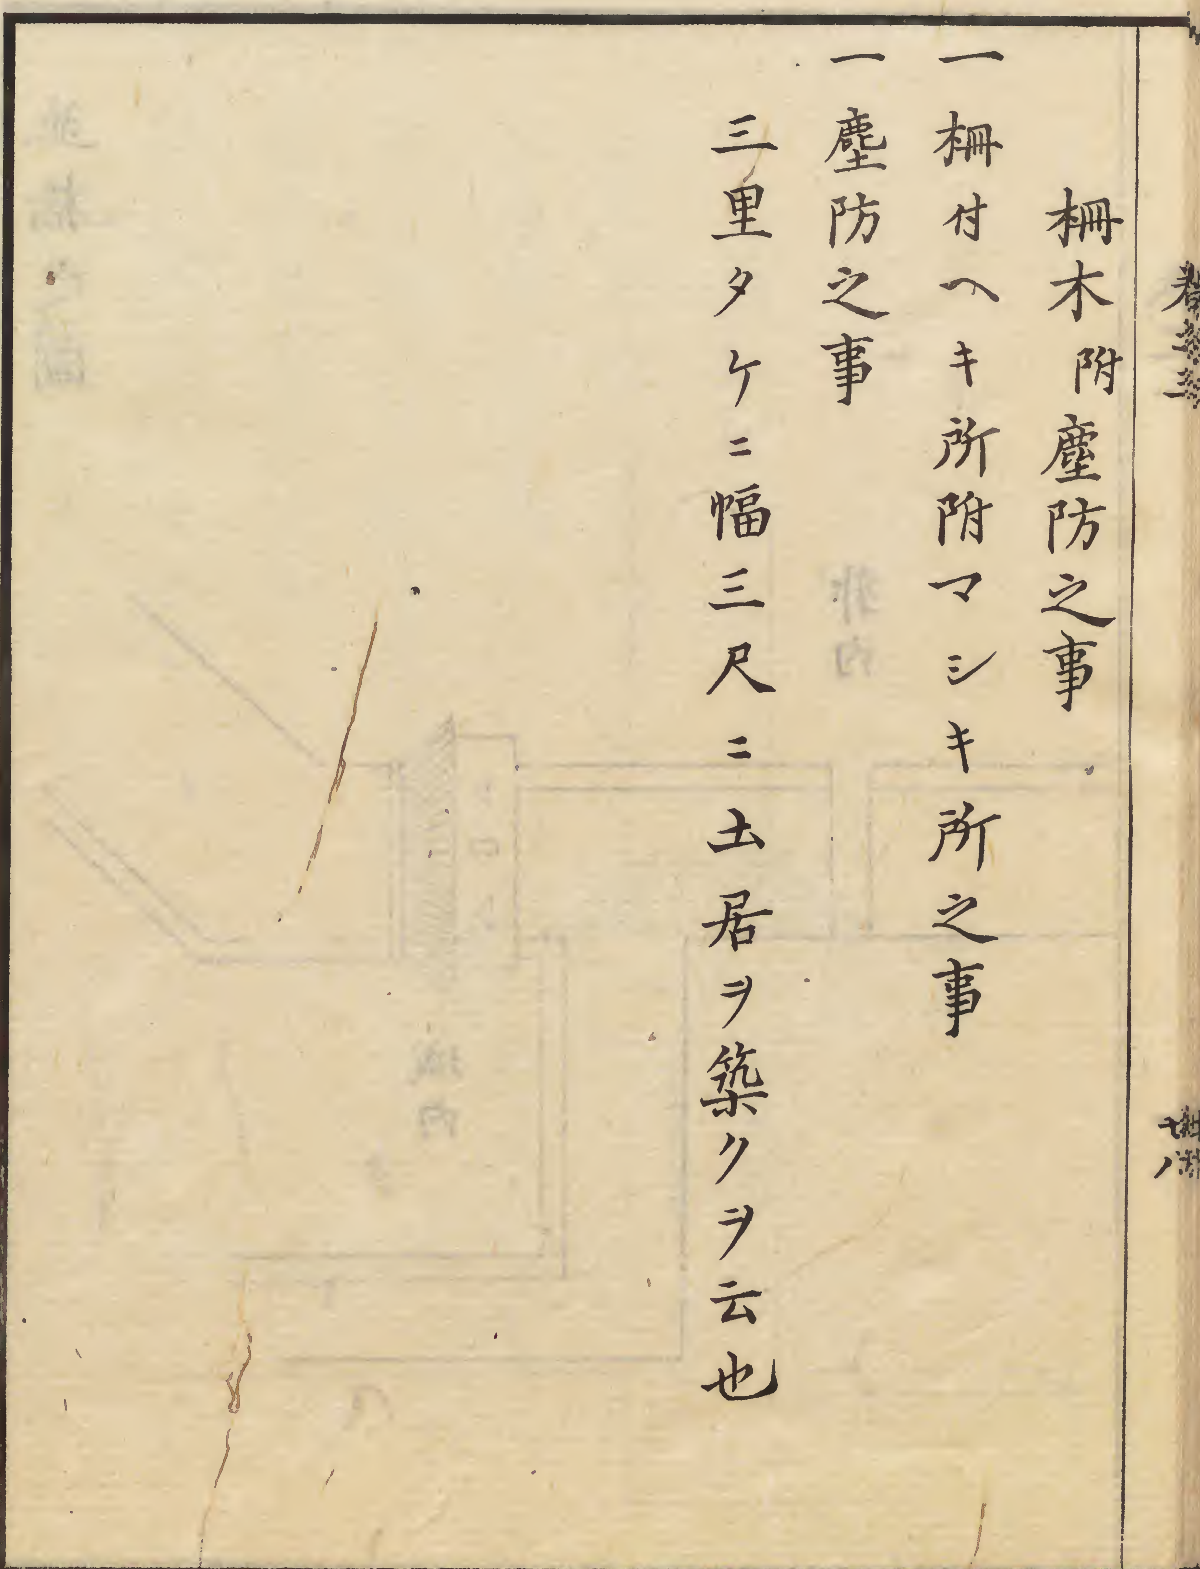 柵木附塵防之事
一柵付ヘキ所附マシキ所之事
一塵防之事
三里タケニ幅三尺ニ土居ヲ築クヲ云也